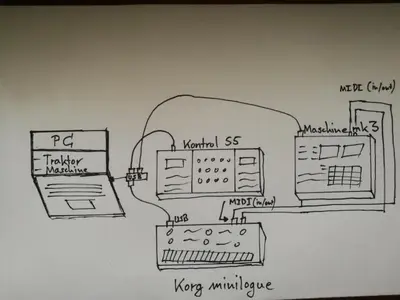 MIDI (in/out)
PC
Traktor
Maschine
USB
Kontrol S5
Maschine mk3
MIDI (in/out)
USB
Korg minilogue